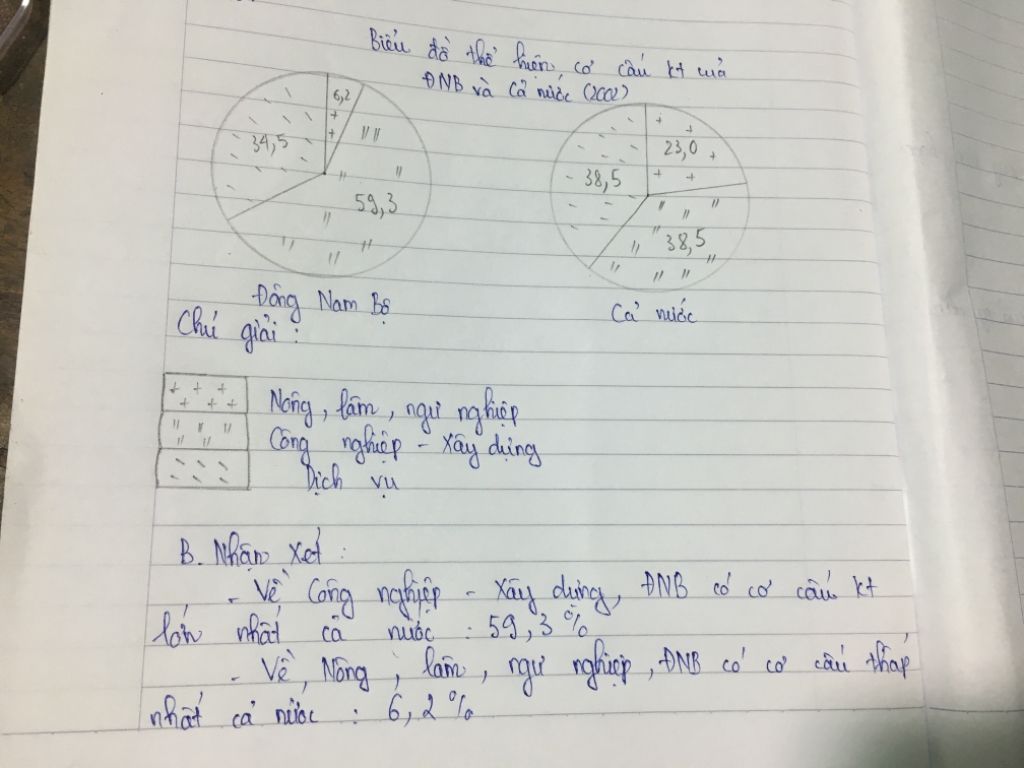 Biểu đồ thể hiện cơ cấu kt của
ĐNB và cả nước (2002)
6,2
34,5
59,3
23,0
38,5
38,5
Đông Nam Bộ
Cả nước
Chú giải :
Nông, lâm, ngư nghiệp
Công nghiệp - Xây dựng
Dịch vụ
B. Nhận xét :
- Về Công nghiệp - Xây dựng, ĐNB có cơ cấu kt
lớn nhất cả nước : 59,3%
- Về, Nông, lâm, ngư nghiệp, ĐNB có cơ cấu thấp
nhất cả nước : 6,2%